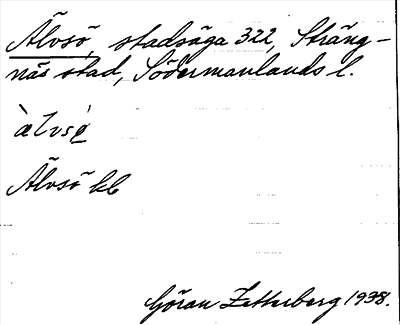 Älvsö, stadsäga 322, Sträng-
näs stad, Södermanlands l.
`ælvsø̀
Älvsö kb
Göran Zetterberg 1938.